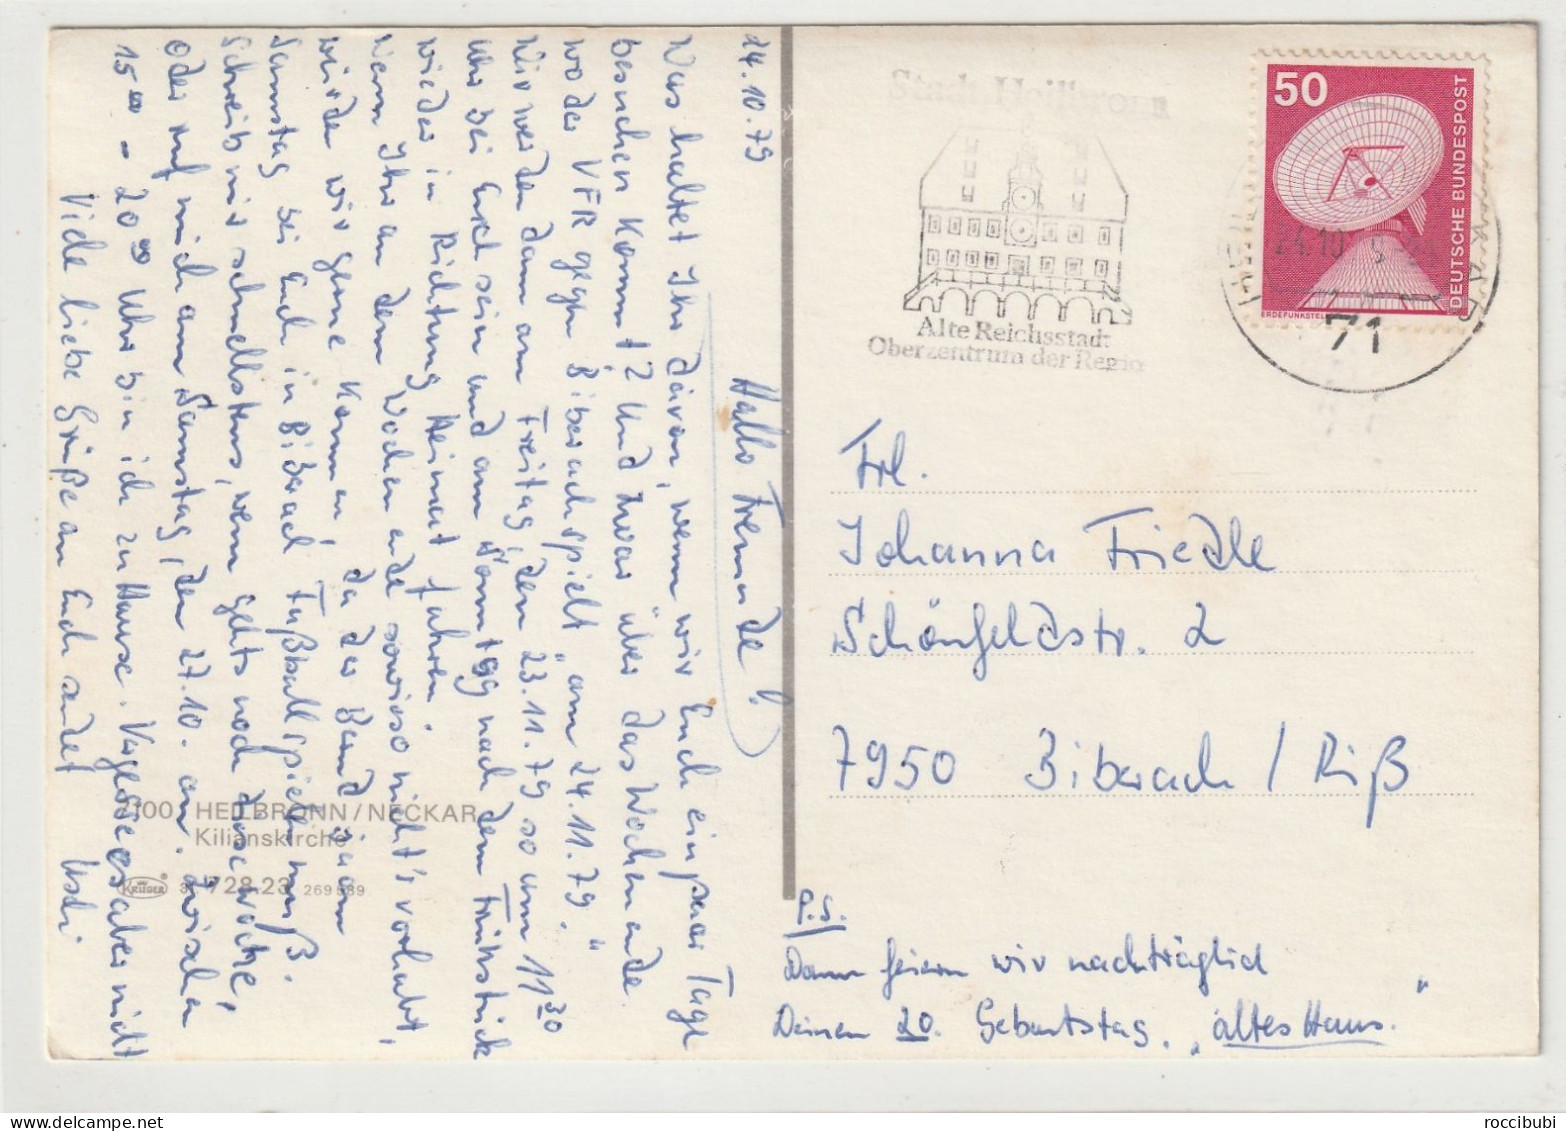 24.10.79
Hallo Freunde!
Was haltet Ihr davon, wenn wir Euch ein paar Tage
besuchen kommt? Und zwar über das Wochenende.
wo der VFR gegen Biberach spielt "am 24.11.79."
Wir werden dann am Freitag, den 23.11.79 so um 11³⁰
Uhr bei Euch sein und am Sonntag nach dem Frühstück
wieder in Richtung Heimat fahren.
Wenn Ihr an dem Wochenende sowieso nicht's vorhabt,
würden wir gerne kommen, da der Bernd
Samstag bei Euch in Biberach Fußball spielen muß.
Schreib mir schnellstens, wenn geht's noch diese Woche,
oder ruf mich am Samstag, den 27.10. an. Zwischen
15⁰⁰ - 20⁰⁰ Uhr bin ich zu Hause. Vergesse es aber nicht
Viele liebe Grüße an Euch sendet
Uschi
7100 HEILBRONN/NECKAR
Kilianskirche
KRÜGER
728.23
Stadt Heilbronn
Alte Reichsstadt
Oberzentrum der Region
50
DEUTSCHE BUNDESPOST
ERDEFUNKSTELLE
24.10
71
Frl.
Johanna Friedle
Schönfeldstr. 2
7950 Biberach / Riß
P.S.
Dann feiern wir nachträglich
Deinen 20. Geburtstag. "altes Haus."
roccibubi